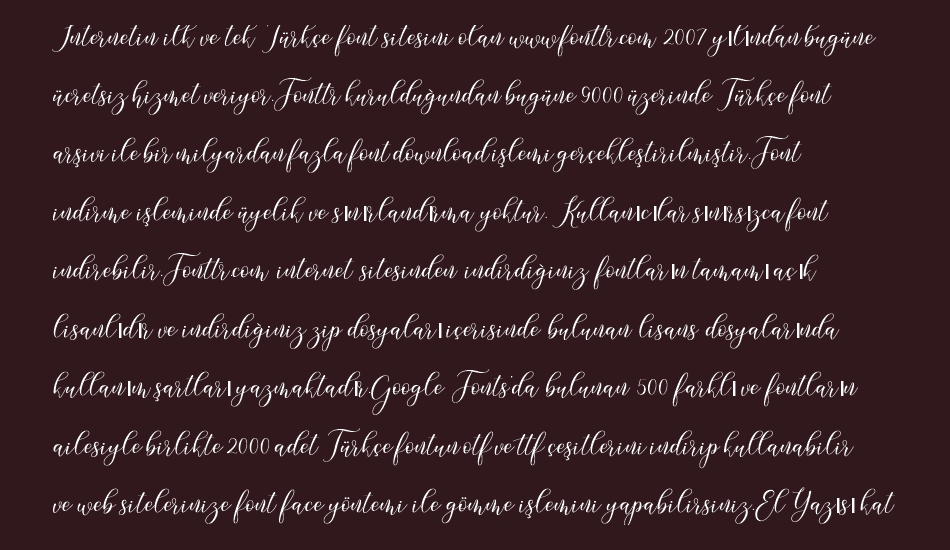 Internetin ilk ve tek Türkçe font sitesini olan www.fonttr.com 2007 yılından bugüne
ücretsiz hizmet veriyor.Fonttr kurulduğundan bugüne 9000 üzerinde Türkçe font
arşivi ile bir milyardan fazla font download işlemi gerçekleştirilmiştir.Font
indirme işleminde üyelik ve sınırlandırma yoktur. Kullanıcılar sınırsızca font
indirebilir.Fonttr.com internet sitesinden indirdiğiniz fontların tamamı açık
lisanlıdır ve indirdiğiniz zip dosyaları içerisinde bulunan lisans dosyalarında
kullanım şartları yazmaktadır.Google Fonts'da bulunan 500 farklı ve fontların
ailesiyle birlikte 2000 adet Türkçe fontun otf ve ttf çeşitlerini indirip kullanabilir
ve web sitelerinize font face yöntemi ile gömme işlemini yapabilirsiniz.El Yazısı kat